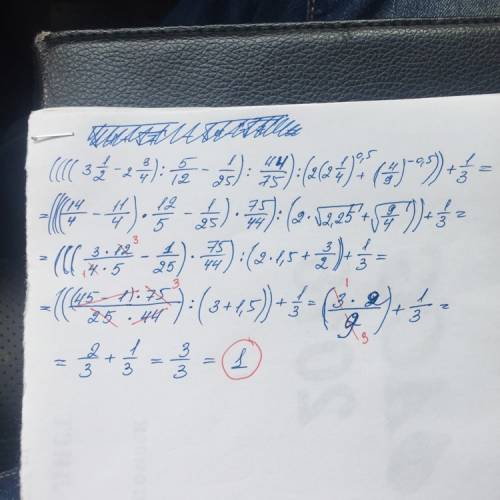 ((((3 1/2 - 2 3/4) : 5/12 - 1/25) : 44/75) : (2(2 1/4)^0,5 + (4/9)^-0,5)) + 1/3 =
= (((14/4 - 11/4) · 12/5 - 1/25) · 75/44) : (2 · √2,25 + √(9/4))) + 1/3 =
= (((3 · 12 3/1 4 · 5 - 1/25) · 75/44) : (2 · 1,5 + 3/2)) + 1/3 =
= (((45 - 1) · 75 3/25 · 44) : (3 + 1,5)) + 1/3 = (3 1 · 2/9 3) + 1/3 =
= 2/3 + 1/3 = 3/3 = 1